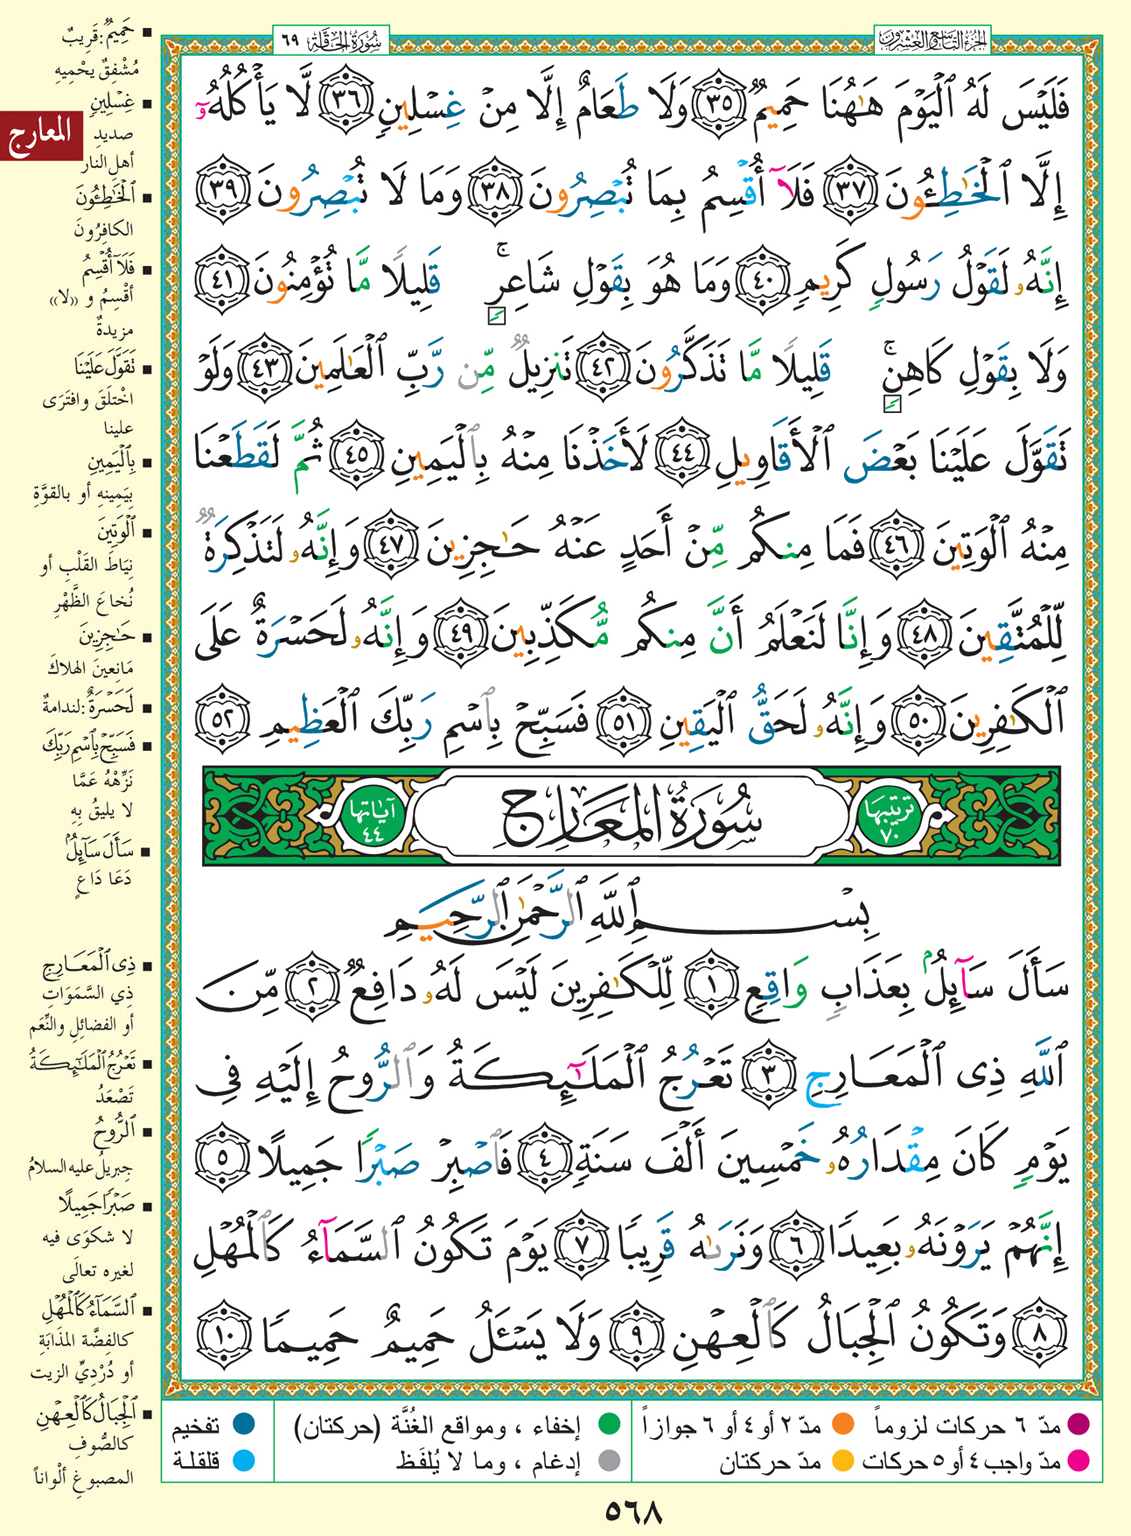 الجزء التاسع والعشرون
سورة الحاقة ٦٩
فَلَيْسَ لَهُ ٱلْيَوْمَ هَٰهُنَا حَمِيمٌ ٣٥ وَلَا طَعَامٌ إِلَّا مِنْ غِسْلِينٍ ٣٦ لَّا يَأْكُلُهُۥٓ
إِلَّا ٱلْخَٰطِـُٔونَ ٣٧ فَلَآ أُقْسِمُ بِمَا تُبْصِرُونَ ٣٨ وَمَا لَا تُبْصِرُونَ ٣٩
إِنَّهُۥ لَقَوْلُ رَسُولٍ كَرِيمٍ ٤٠ وَمَا هُوَ بِقَوْلِ شَاعِرٍ ۚ قَلِيلًا مَّا تُؤْمِنُونَ ٤١
وَلَا بِقَوْلِ كَاهِنٍ ۚ قَلِيلًا مَّا تَذَكَّرُونَ ٤٢ تَنزِيلٌ مِّن رَّبِّ ٱلْعَٰلَمِينَ ٤٣ وَلَوْ
تَقَوَّلَ عَلَيْنَا بَعْضَ ٱلْأَقَاوِيلِ ٤٤ لَأَخَذْنَا مِنْهُ بِٱلْيَمِينِ ٤٥ ثُمَّ لَقَطَعْنَا
مِنْهُ ٱلْوَتِينَ ٤٦ فَمَا مِنكُم مِّنْ أَحَدٍ عَنْهُ حَٰجِزِينَ ٤٧ وَإِنَّهُۥ لَتَذْكِرَةٌ
لِّلْمُتَّقِينَ ٤٨ وَإِنَّا لَنَعْلَمُ أَنَّ مِنكُم مُّكَذِّبِينَ ٤٩ وَإِنَّهُۥ لَحَسْرَةٌ عَلَى
ٱلْكَٰفِرِينَ ٥٠ وَإِنَّهُۥ لَحَقُّ ٱلْيَقِينِ ٥١ فَسَبِّحْ بِٱسْمِ رَبِّكَ ٱلْعَظِيمِ ٥٢
ترتيبها ٧٠ سُورَةُ المَعَارِجِ آياتها ٤٤
بِسْمِ ٱللَّهِ ٱلرَّحْمَٰنِ ٱلرَّحِيمِ
سَأَلَ سَآئِلٌۢ بِعَذَابٍ وَاقِعٍ ١ لِّلْكَٰفِرِينَ لَيْسَ لَهُۥ دَافِعٌ ٢ مِّنَ
ٱللَّهِ ذِى ٱلْمَعَارِجِ ٣ تَعْرُجُ ٱلْمَلَٰٓئِكَةُ وَٱلرُّوحُ إِلَيْهِ فِى
يَوْمٍ كَانَ مِقْدَارُهُۥ خَمْسِينَ أَلْفَ سَنَةٍ ٤ فَٱصْبِرْ صَبْرًا جَمِيلًا ٥
إِنَّهُمْ يَرَوْنَهُۥ بَعِيدًا ٦ وَنَرَىٰهُ قَرِيبًا ٧ يَوْمَ تَكُونُ ٱلسَّمَآءُ كَٱلْمُهْلِ
٨ وَتَكُونُ ٱلْجِبَالُ كَٱلْعِهْنِ ٩ وَلَا يَسْـَٔلُ حَمِيمٌ حَمِيمًا ١٠
المعارج
■ حَمِيمٌ: قَرِيبٌ
مُشْفِقٌ يحْمِيهِ
■ غِسْلِينٍ
صديدِ
أهلِ النار
■ ٱلْخَٰطِـُٔونَ
الكافِرُونَ
■ فَلَآ أُقْسِمُ
أقْسِمُ و «لا»
مزيدةٌ
■ تَقَوَّلَ عَلَيْنَا
اخْتلَقَ وافتَرَى
علينا
■ بِٱلْيَمِينِ
بِيَمِينهِ أو بالقوَّةِ
■ ٱلْوَتِينَ
نِيَاطَ القَلْبِ أو
نُخاعَ الظَّهْرِ
■ حَٰجِزِينَ
مَانِعِينَ الهلاكَ
■ لَحَسْرَةٌ: لندامةٌ
■ فَسَبِّحْ بِٱسْمِ رَبِّكَ
نَزِّهْهُ عَمَّا
لا يليقُ بِهِ
■ سَأَلَ سَآئِلٌۢ
دَعَا دَاعٍ
■ ذِى ٱلْمَعَارِجِ
ذِي السَّمَوَاتِ
أو الفضائلِ والنِّعَم
■ تَعْرُجُ ٱلْمَلَٰٓئِكَةُ
تَصْعَدُ
■ ٱلرُّوحُ
جِبريلُ عليه السلامُ
■ صَبْرًا جَمِيلًا
لا شكوَى فيه
لغيره تعالَى
■ ٱلسَّمَآءُ كَٱلْمُهْلِ
كالفِضَّة المذَابَةِ
أو دُرْدِيِّ الزيت
■ ٱلْجِبَالُ كَٱلْعِهْنِ
كالصُّوفِ
المصبوغِ ألْواناً
مدّ ٦ حركات لزوماً
مدّ ٢ أو ٤ أو ٦ جوازاً
إخفاء ، ومواقع الغُنَّة (حركتان)
تفخيم
مدّ واجب ٤ أو ٥ حركات
مدّ حركتان
إدغام ، وما لا يُلفَظ
قلقلة
٥٦٨